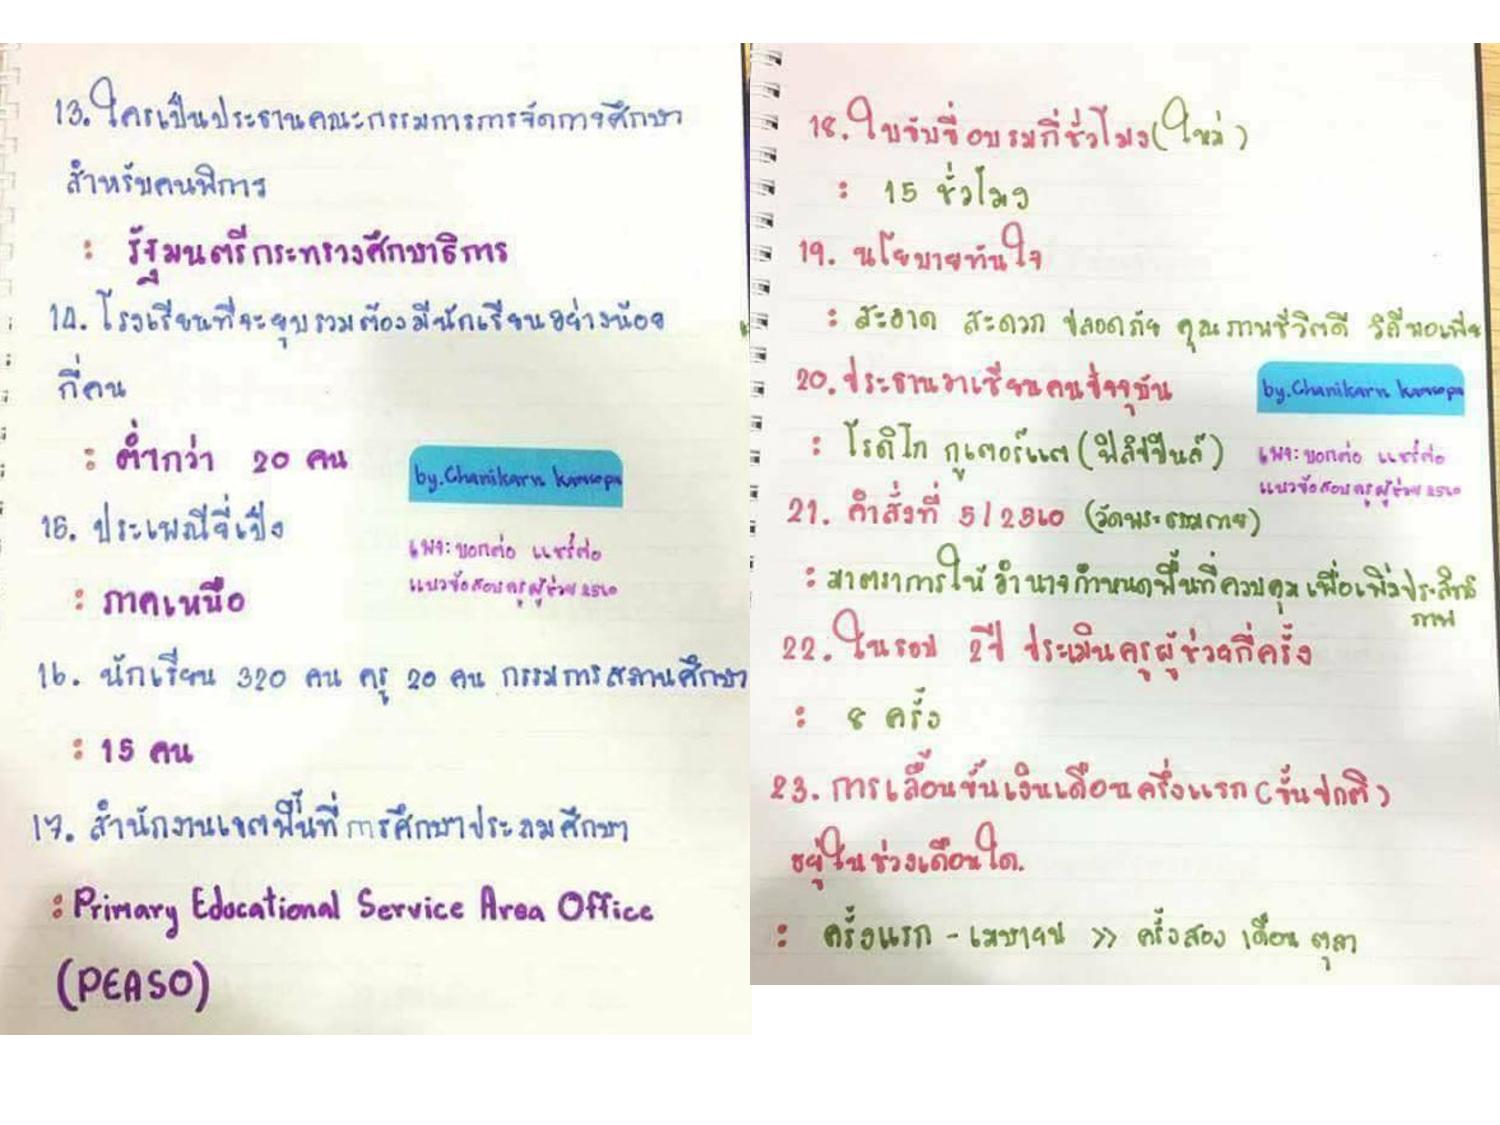 13. ใครเป็นประธานคณะกรรมการการจัดการศึกษา
สำหรับคนพิการ
: รัฐมนตรีกระทรวงศึกษาธิการ
14. โรงเรียนที่จะยุบรวมต้องมีนักเรียนอย่างน้อย
กี่คน
: ต่ำกว่า 20 คน
by.Chanikarn
15. ประเพณีจี่เป็ง
เพจ:บอกต่อ แชร์ต่อ
แนวข้อสอบครูผู้ช่วย 2560
: ภาคเหนือ
16. นักเรียน 320 คน ครู 20 คน กรรมการสถานศึกษา
: 15 คน
17. สำนักงานเขตพื้นที่การศึกษาประถมศึกษา
: Primary Educational Service Area Office
(PEASO)
18. ใบขับขี่อบรมกี่ชั่วโมง(ใหม่)
: 15 ชั่วโมง
19. นโยบายทันใจ
: สะอาด สะดวก ปลอดภัย คุณภาพชีวิตดี วิถีพอเพีย
20. ประธานอาเซียนคนปัจจุบัน
by.Chanikarn
: โรดิโก ดูเตอร์เต (ฟิลิปปินส์)
เพจ:บอกต่อ แชร์ต่อ
แนวข้อสอบครูผู้ช่วย 2560
21. คำสั่งที่ 5/2560 (วัดพระธรรมกาย)
: มาตราการให้อำนาจกำหนดพื้นที่ควบคุมเพื่อเพิ่มประสิทธิ
ภาพ
22. ในรอบ 2ปี ประเมินครูผู้ช่วยกี่ครั้ง
: 8 ครั้ง
23. การเลื่อนขั้นเงินเดือนครึ่งแรก (ขั้นปกติ)
อยู่ในช่วงเดือนใด.
: ครั้งแรก - เมษายน >> ครั้งสอง เดือน ตุลา